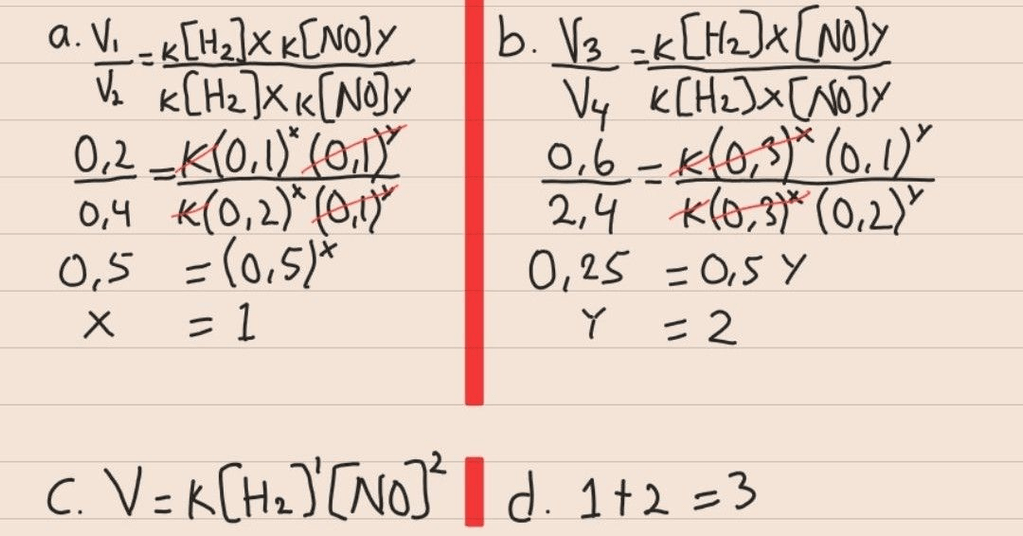 a. V₁/V₂ = K[H₂]x K[NO]y / K[H₂]x K[NO]y
0,2/0,4 = K(0,1)ˣ (0,1)ʸ / K(0,2)ˣ (0,1)ʸ
0,5 = (0,5)ˣ
x = 1
b. V₃/V₄ = K[H₂]x[NO]y / K[H₂]x[NO]y
0,6/2,4 = K(0,3)ˣ (0,1)ʸ / K(0,3)ˣ (0,2)ʸ
0,25 = 0,5 Y
Y = 2
c. V = K[H₂]¹[NO]²
d. 1+2 = 3